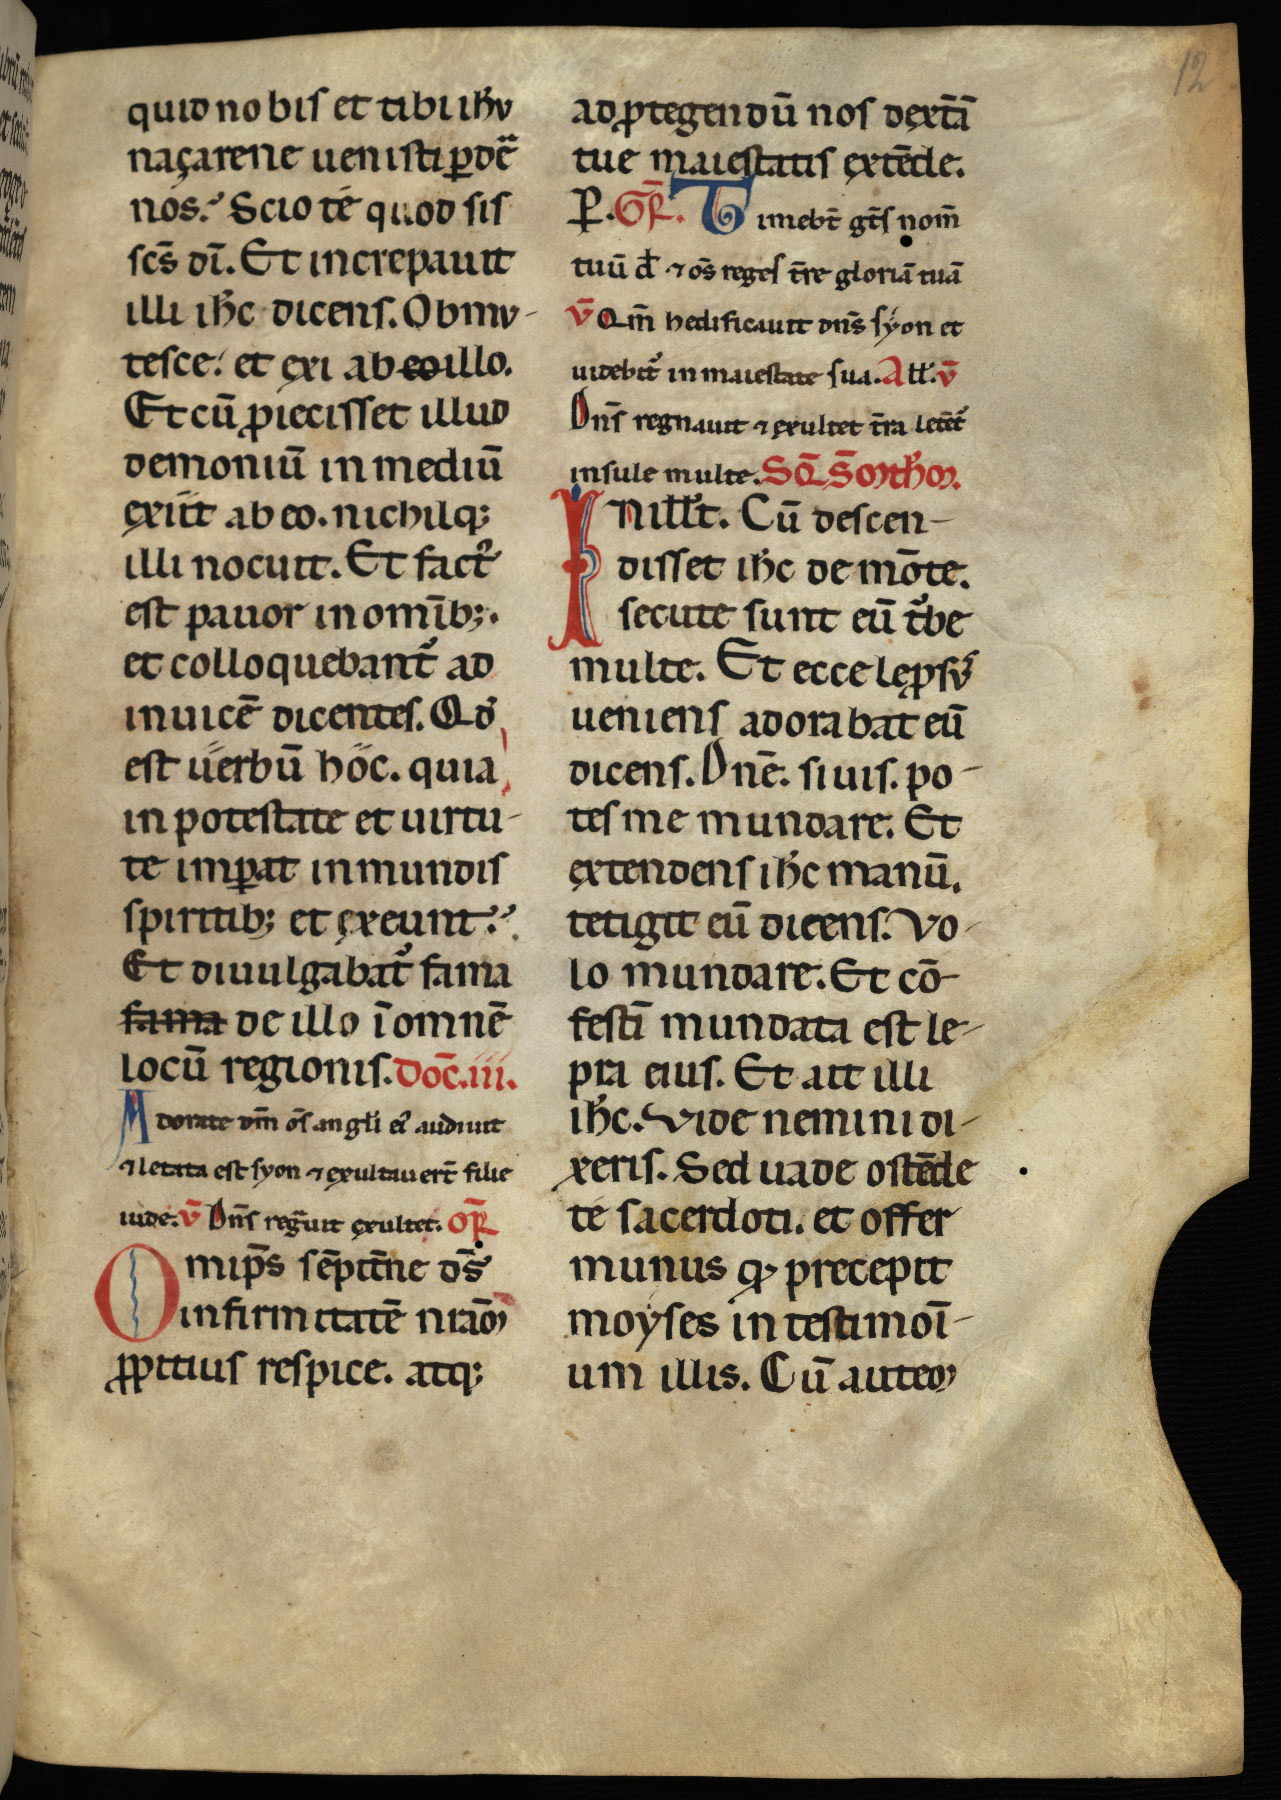 12
quid nobis et tibi ihu̅
naçarene uenisti ꝑdẽ
nos. Scio te quod sis
sc̅s di̅. Et increpauit
illi ih̅c dicens. Obmu-
tesce. et exi ab eo illo.
Et cu̅ proiecisset illud
demoniu̅ in mediu̅
exiit ab eo. nichilqꝫ
illi nocuit. Et fact᷑
est pauor in omi̅bꝫ.
et colloquebant᷑ ad
inuice̅ dicentes. Qd̕
est uerbu̅ hoc. quia
in potestate et uirtu-
te imꝑat inmundis
spiritibꝫ et exeunt.
Et diuulgabat᷑ fama
fama de illo i̅ omne̅
locu̅ regionis. Doc̅. iii.
Adorate dm̅ om̅s angli ei᷑ audiuit
⁊ letata est syon ⁊ exultauer̅t filie
iude. v̅ Dn̅s reg̅uit exultet. Or̅
Omip̅s se̅pit̅ne ds̅
infirmitate̅ nr̅aꝫ
ꝓpitius respice. atqꝫ
ad ꝓtegendu̅ nos dext̅a̅
tue maiestatis exte̅de.
P. Gr̅. Timebt̅ gt̅s nom̅
tuu̅ d̅ ⁊ om̅s reges t̅re gloria̅ tua̅
v̅ Qm̅ hedificauit dn̅s syon et
uidebit᷑ in maiestate sua. All̅. v̅
Dn̅s regnauit ⁊ exultet t̅ra lete̅t᷑
insule multe. Sq̅. S. Mth̅m.
In ill̅ t. Cu̅ descen-
disset ih̅c de mo̅te.
secute sunt eu̅ t᷑be
multe. Et ecce leprsꝰ
ueniens adorabat eu̅
dicens. Dn̅e. si uis. po-
tes me mundare. Et
extendens ih̅c manu̅.
tetigit eu̅ dicens. Vo-
lo mundare. Et co̅-
festi̅ mundata est le-
pra eius. Et ait illi
ih̅c. Vide nemini di-
xeris. Sed uade oste̅de
te sacerdoti. et offer
munus qꝫ precepit
moyses in testimoi̅-
um illis. Cu̅ autem